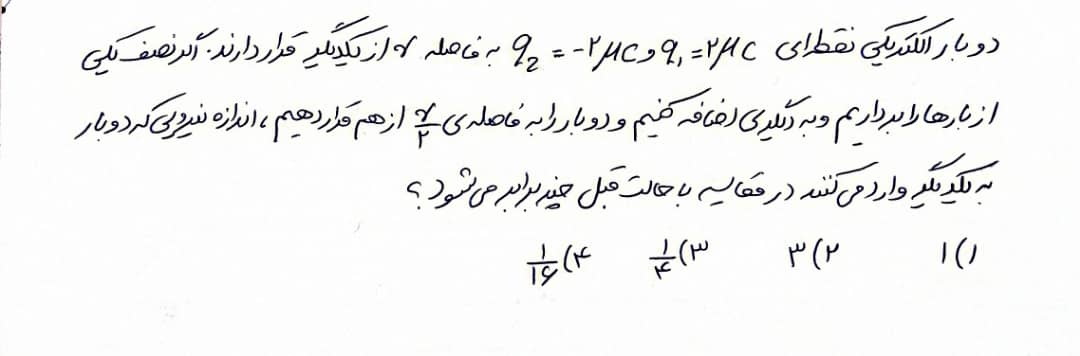 دو بار الکتریکی نقطه‌ای q₁ = ۲μC و q₂ = -۲μC به فاصله r از یکدیگر قرار دارند. اگر نصف یکی
از بارها را برداریم و به دیگری اضافه کنیم و دو بار را به فاصله‌ی r/۲ از هم قرار دهیم، اندازه نیرویی که دو بار
به یکدیگر وارد می‌کنند در مقایسه با حالت قبل چند برابر می‌شود؟
۱) ۱ ۲) ۳ ۳) ۱/۴ ۴) ۱/۱۶